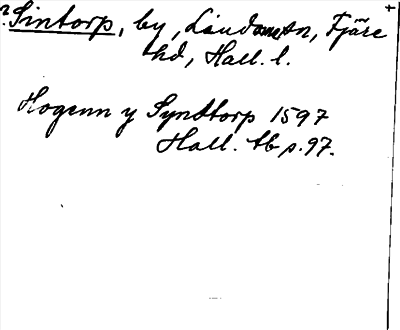 ? Sintorp, by, Lindome sn, Fjäre
hd, Hall. l.
Hogenn y Syndtorp 1597
Hall. tb p. 97.